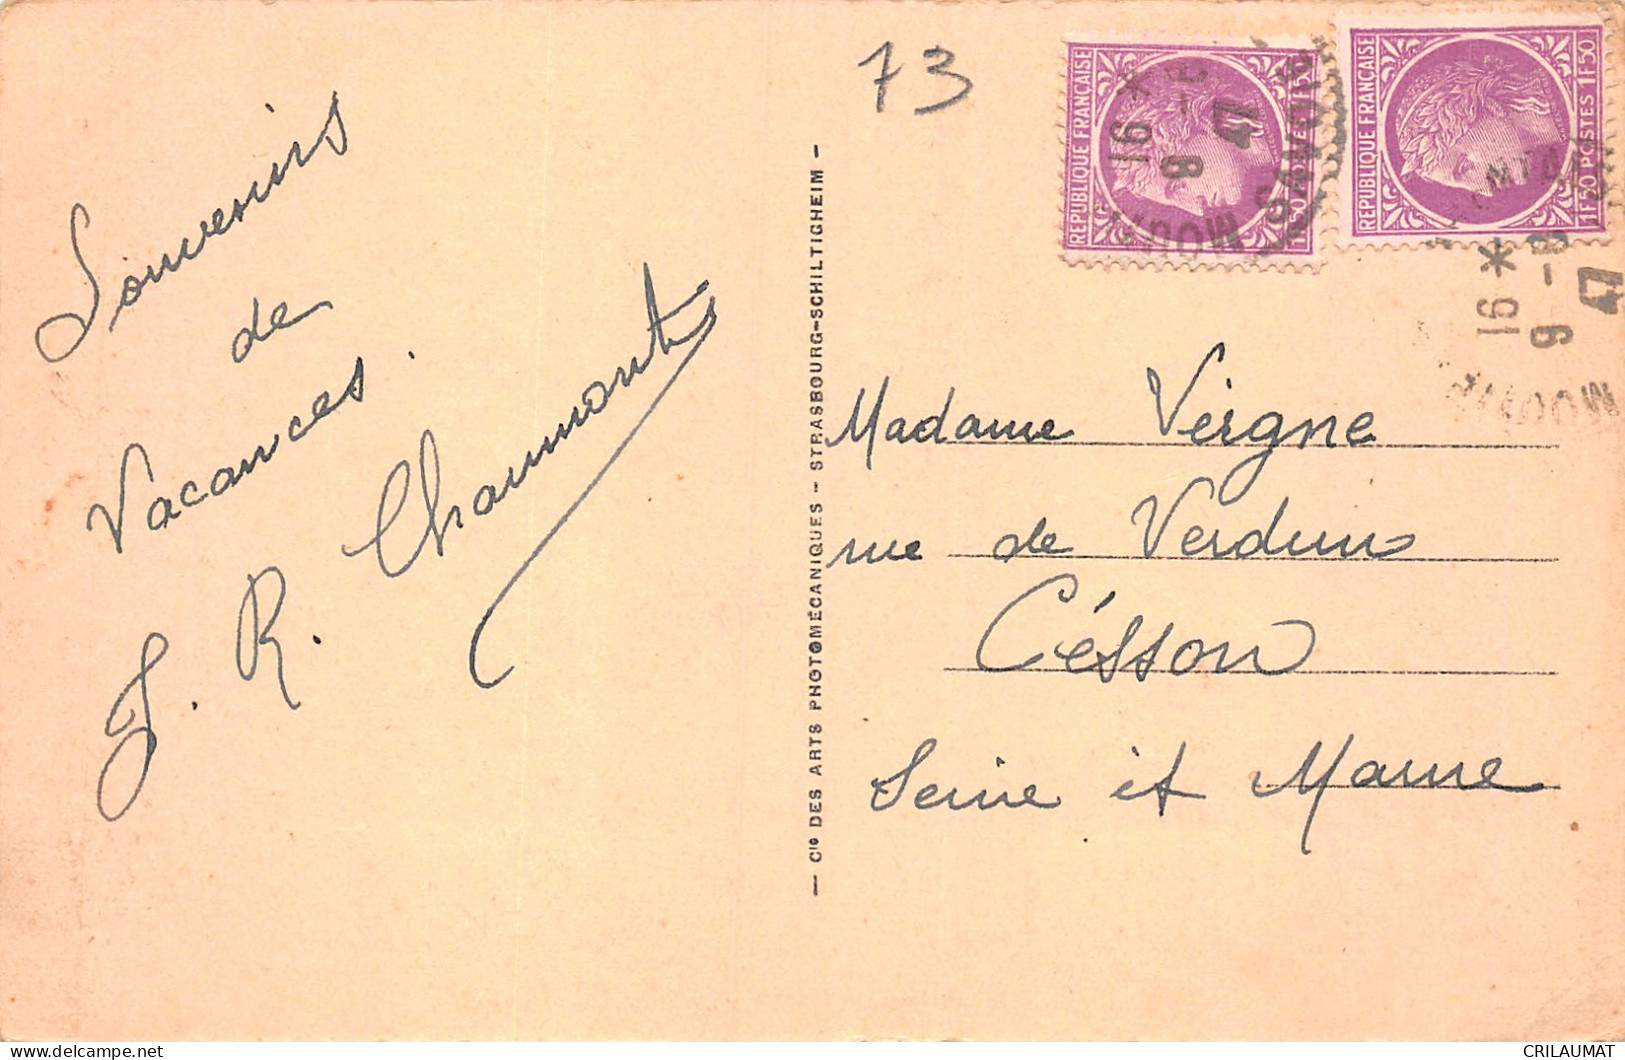 73
Souvenirs
de
Vacances.
J. R. Chaumont
— Cie DES ARTS PHOTOMÉCANIQUES - STRASBOURG-SCHILTIGHEIM -
RÉPUBLIQUE FRANÇAISE
1F50 POSTES 1F50
RÉPUBLIQUE FRANÇAISE
1F50 POSTES 1F50
16 *
9 - 8
47
SAVOIE
16 *
9 - 8
47
Madame Vergne
rue de Verdun
Césson
Seine et Marne
CRILAUMAT